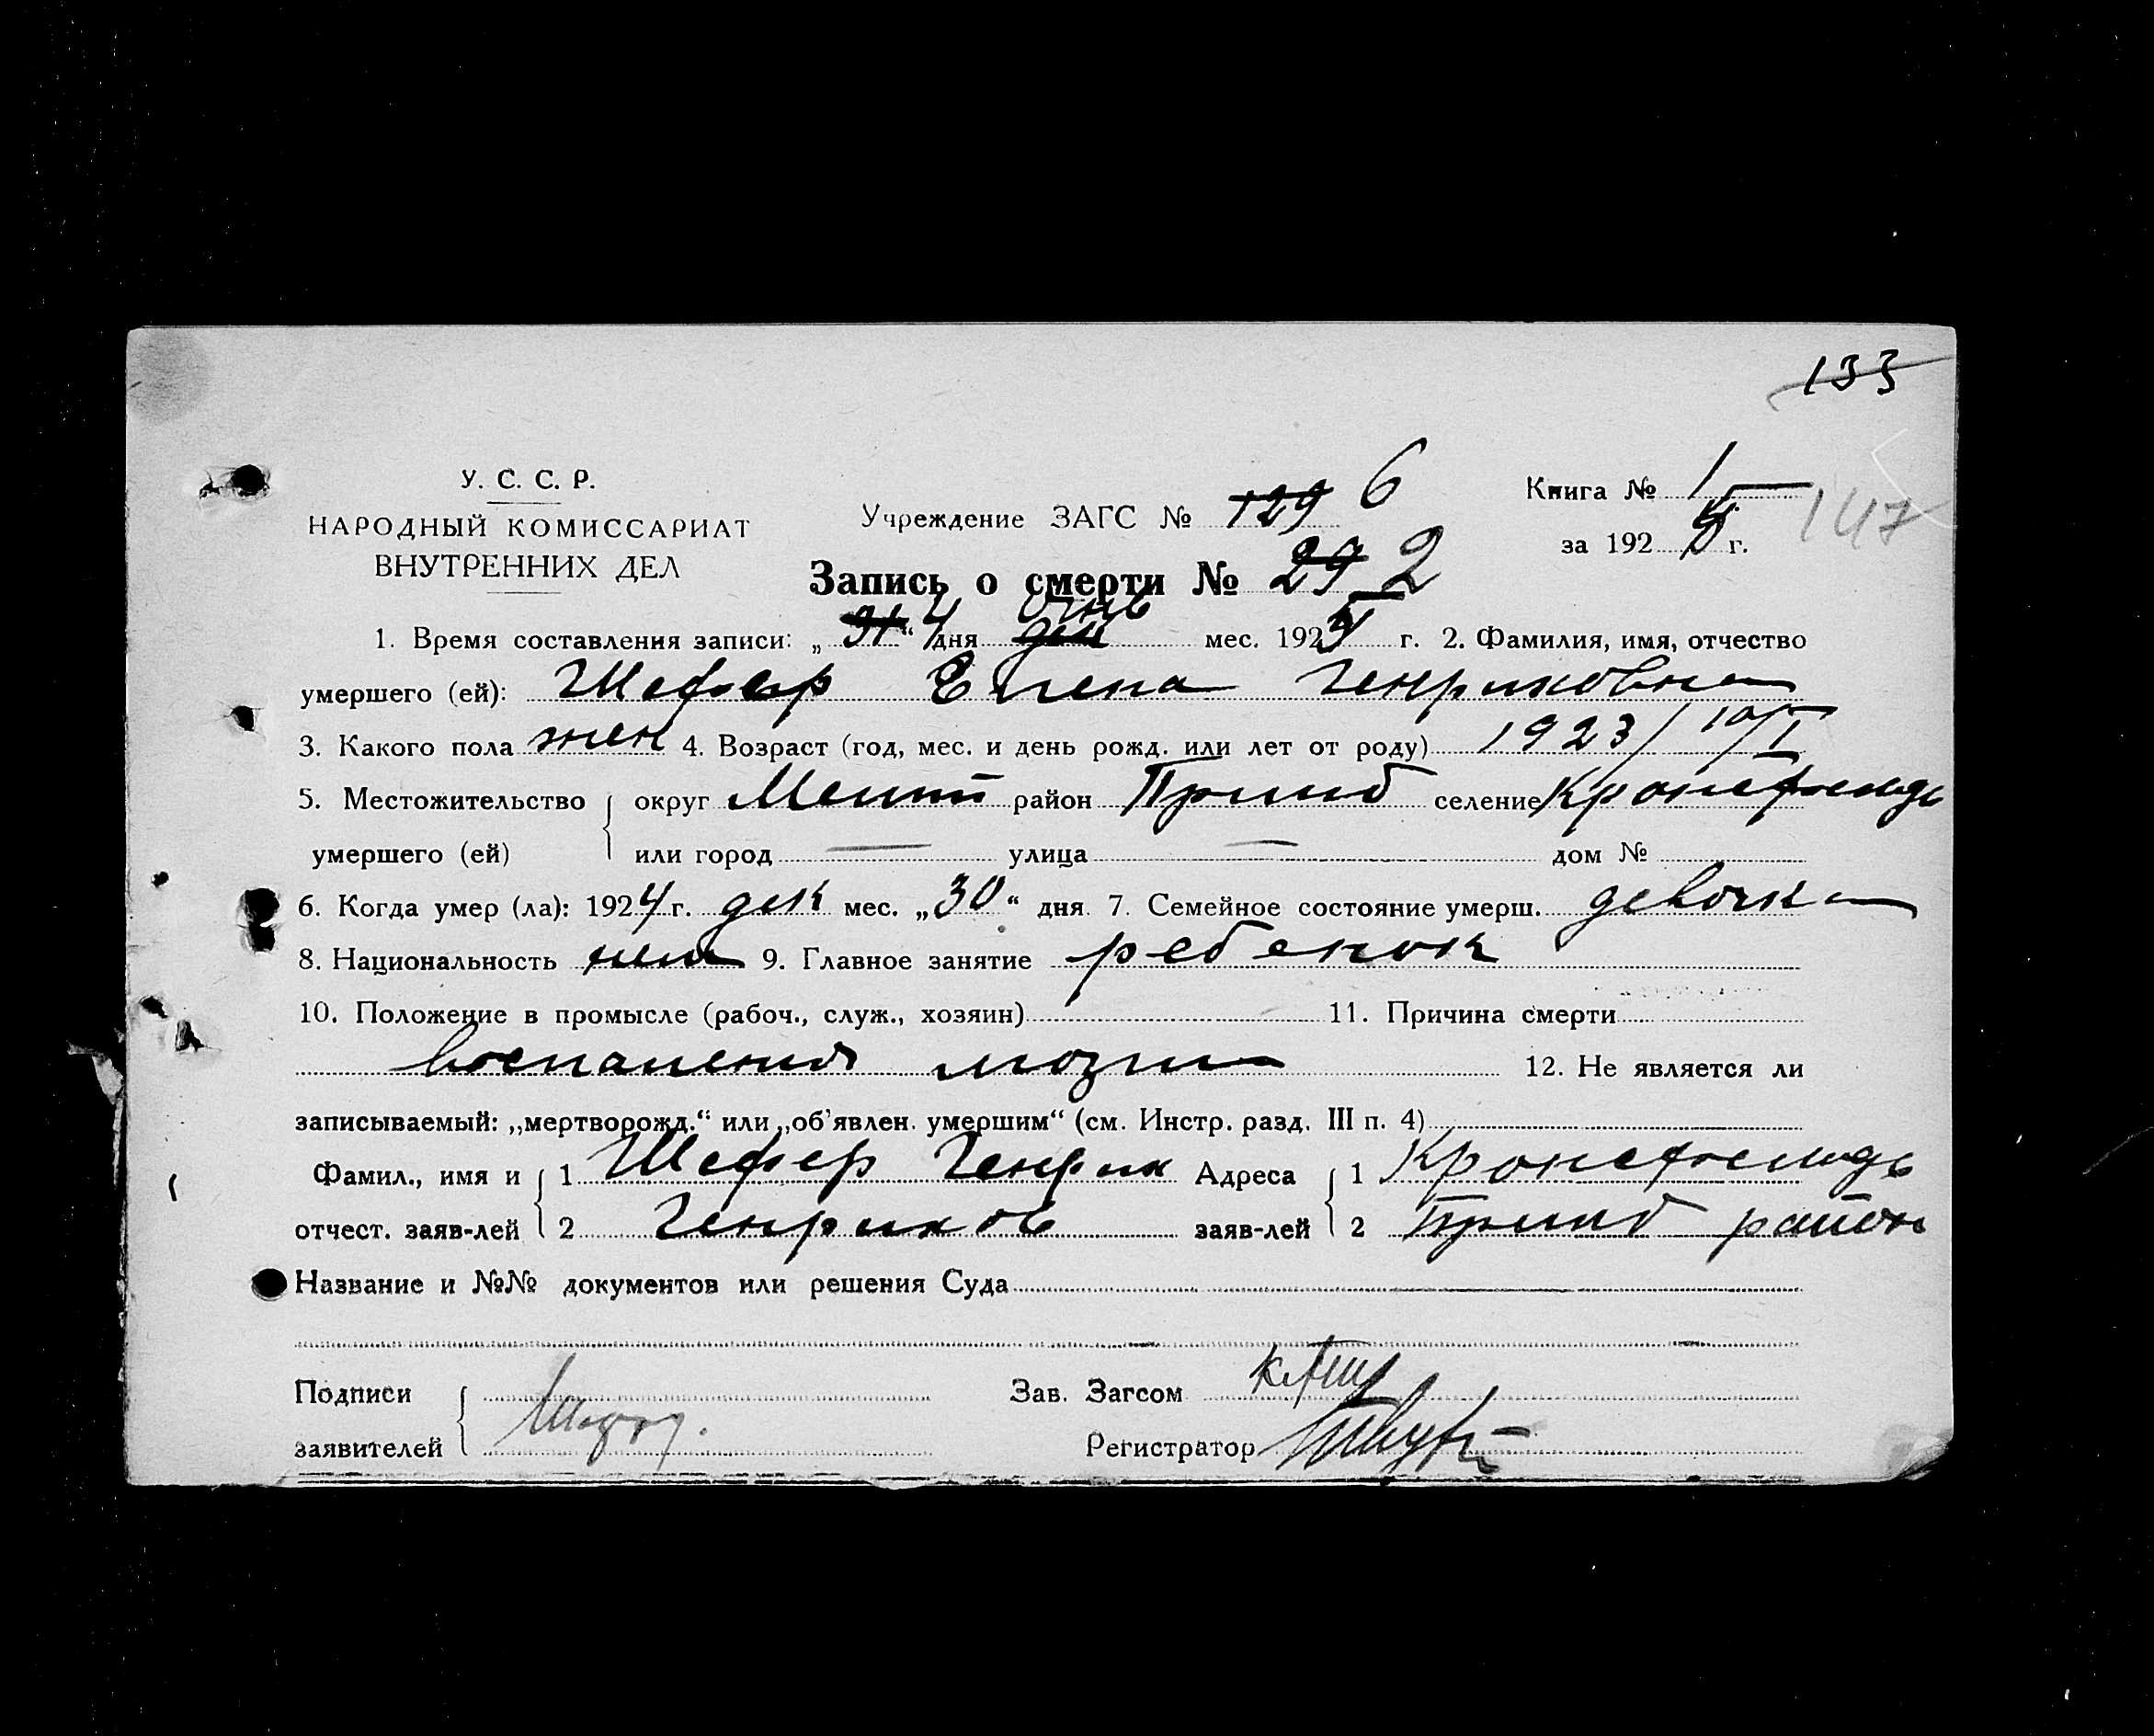 133
У. С. С. Р.
НАРОДНЫЙ КОМИССАРИАТ
ВНУТРЕННИХ ДЕЛ
Учреждение ЗАГС № 129 6
Книга № 1
за 192 5 г.
147
Запись о смерти № 29 2
1. Время составления записи: „31“ 4 дня дек мес. 1925 г. 2. Фамилия, имя, отчество
умершего (ей): Шефер Елена Генриховна
3. Какого пола жен 4. Возраст (год, мес. и день рожд. или лет от роду) 1923/10/I
5. Местожительство округ Мелит район Пришиб селение Кронсфельдь
умершего (ей) или город — улица — дом №
6. Когда умер (ла): 1924 г. дек мес. „30“ дня 7. Семейное состояние умерш. девочка
8. Национальность нем 9. Главное занятие ребенок
10. Положение в промысле (рабоч., служ., хозяин) 11. Причина смерти
воспаления мозга 12. Не является ли
записываемый: „мертворожд.“ или „об’явлен. умершим“ (см. Инстр. разд. III п. 4)
Фамил., имя и 1 Шефер Генрих Адреса 1 Кронсфельдь
отчест. заяв-лей 2 Генрихов заяв-лей 2 Пришиб район
Название и №№ документов или решения Суда
Подписи Зав. Загсом
заявителей Регистратор